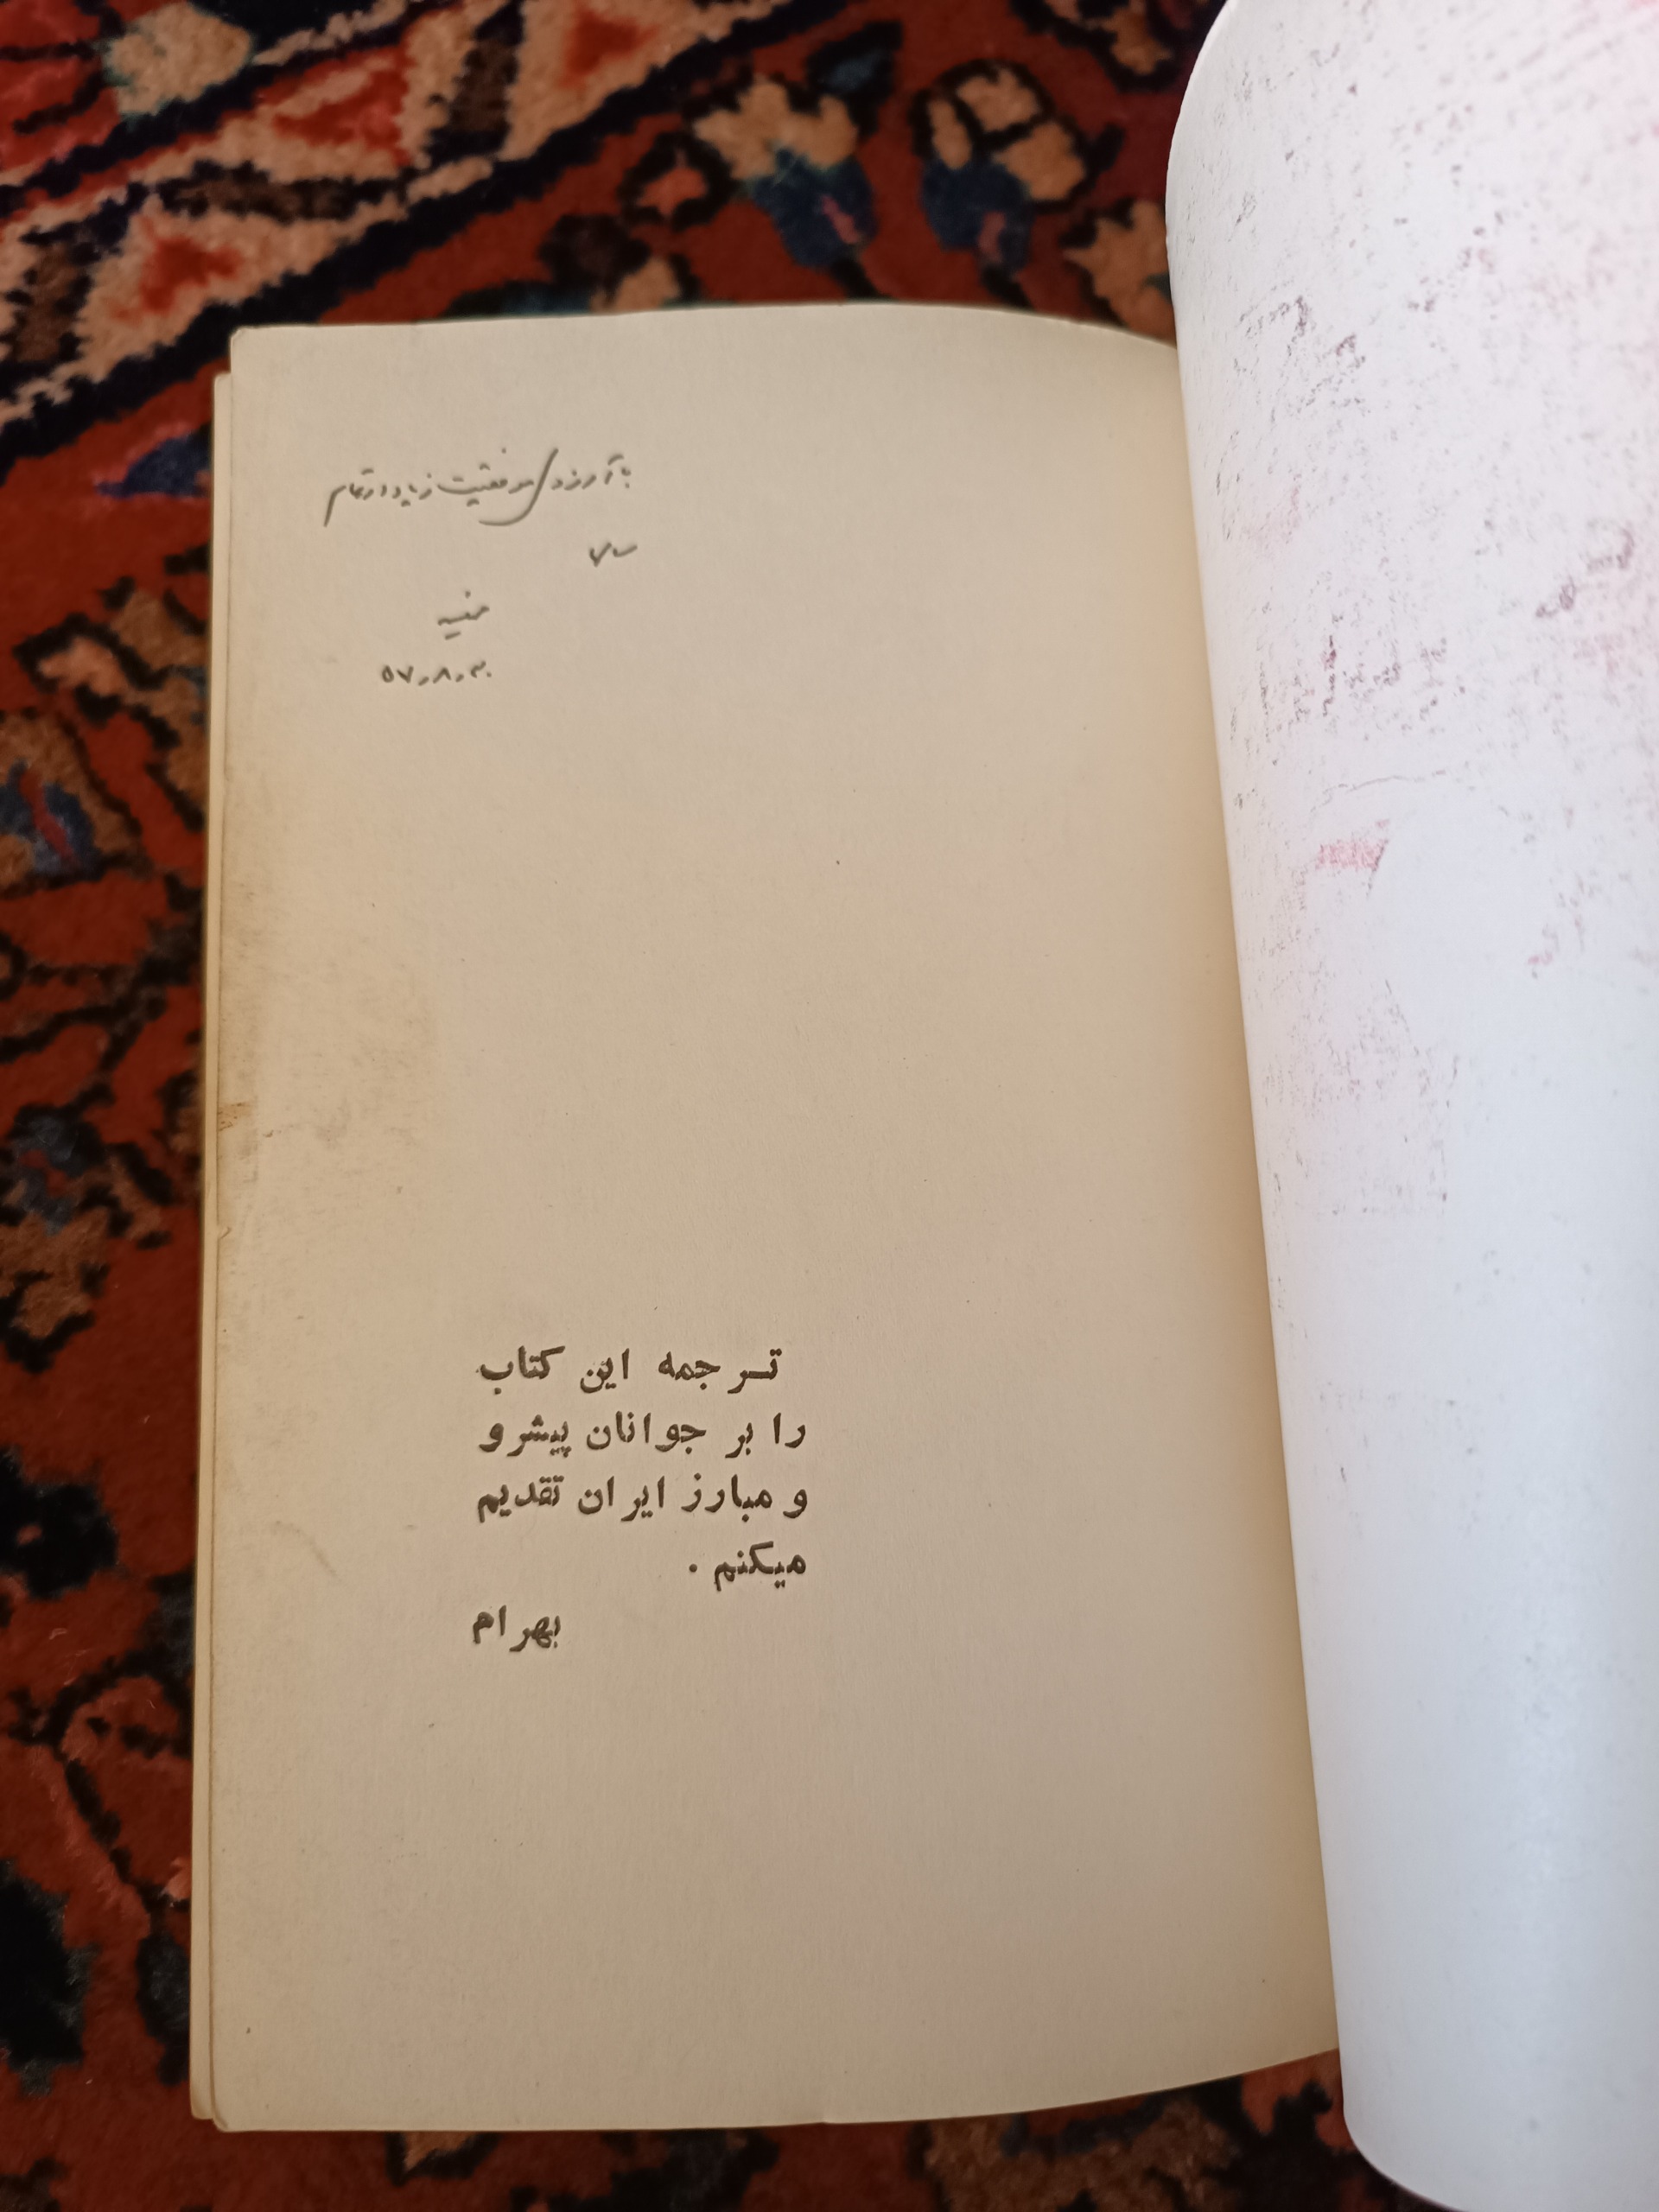 با آرزوی موفقیت زیاد در تمام
ترجمه این کتاب
را بر جوانان پیشرو
و مبارز ایران تقدیم
میکنم .
بهرام